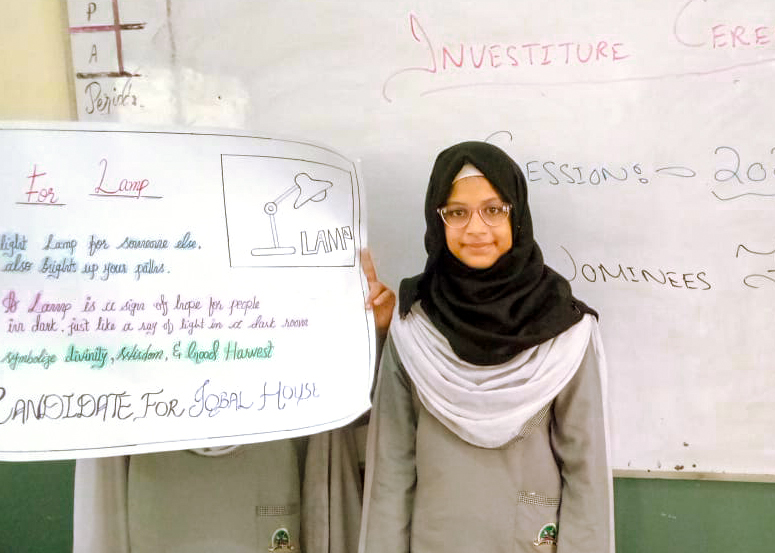 P
A
Period:
INVESTITURE CERE
SESSION:- 202
NOMINEES
For Lamp
LAMP
light Lamp for someone else,
also brights up your paths.
A Lamp is a sign of hope for people
in dark, just like a ray of light in a dark room
symbolize divinity, Wisdom, & Good Harvest
CANDIDATE FOR IQBAL HOUSE